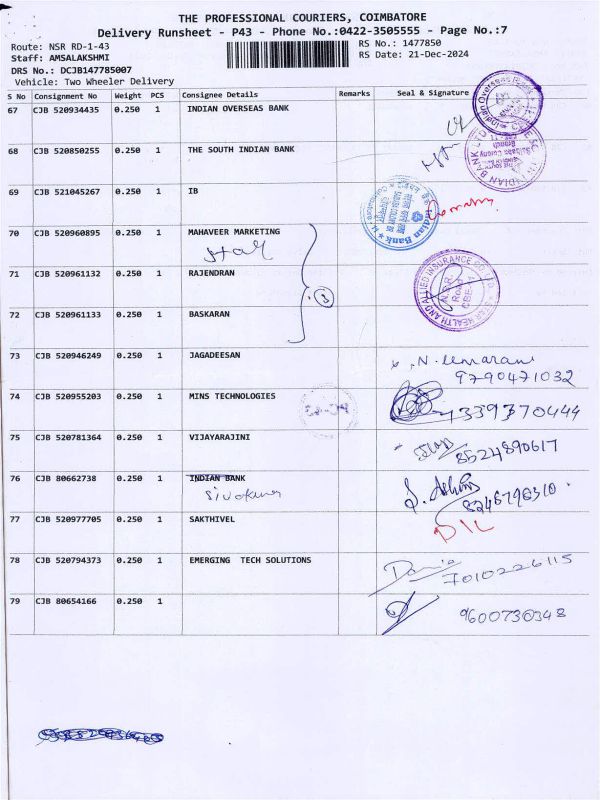 THE PROFESSIONAL COURIERS, COIMBATORE
Delivery Runsheet - P43 - Phone No.:0422-3505555 - Page No.:7
Route: NSR RD-1-43
RS No.: 1477850
Staff: AMSALAKSHMI
RS Date: 21-Dec-2024
DRS No.: DCJB147785007
Vehicle: Two Wheeler Delivery
S No Consignment No Weight PCS Consignee Details Remarks Seal & Signature
67 CJB 520934435 0.250 1 INDIAN OVERSEAS BANK
68 CJB 520850255 0.250 1 THE SOUTH INDIAN BANK
69 CJB 521045267 0.250 1 IB
70 CJB 520960895 0.250 1 MAHAVEER MARKETING
Star
71 CJB 520961132 0.250 1 RAJENDRAN
STAR HEALTH AND ALLIED INSURANCE CO. LTD.
N.S.R. Road CBE-11
72 CJB 520961133 0.250 1 BASKARAN
3
73 CJB 520946249 0.250 1 JAGADEESAN
9790471032
74 CJB 520955203 0.250 1 MINS TECHNOLOGIES
7339370444
75 CJB 520781364 0.250 1 VIJAYARAJINI
8524890617
76 CJB 80662738 0.250 1 INDIAN BANK
Sivakumar
77 CJB 520977705 0.250 1 SAKTHIVEL
D/L
78 CJB 520794373 0.250 1 EMERGING TECH SOLUTIONS
7010226115
79 CJB 80654166 0.250 1
9600730348